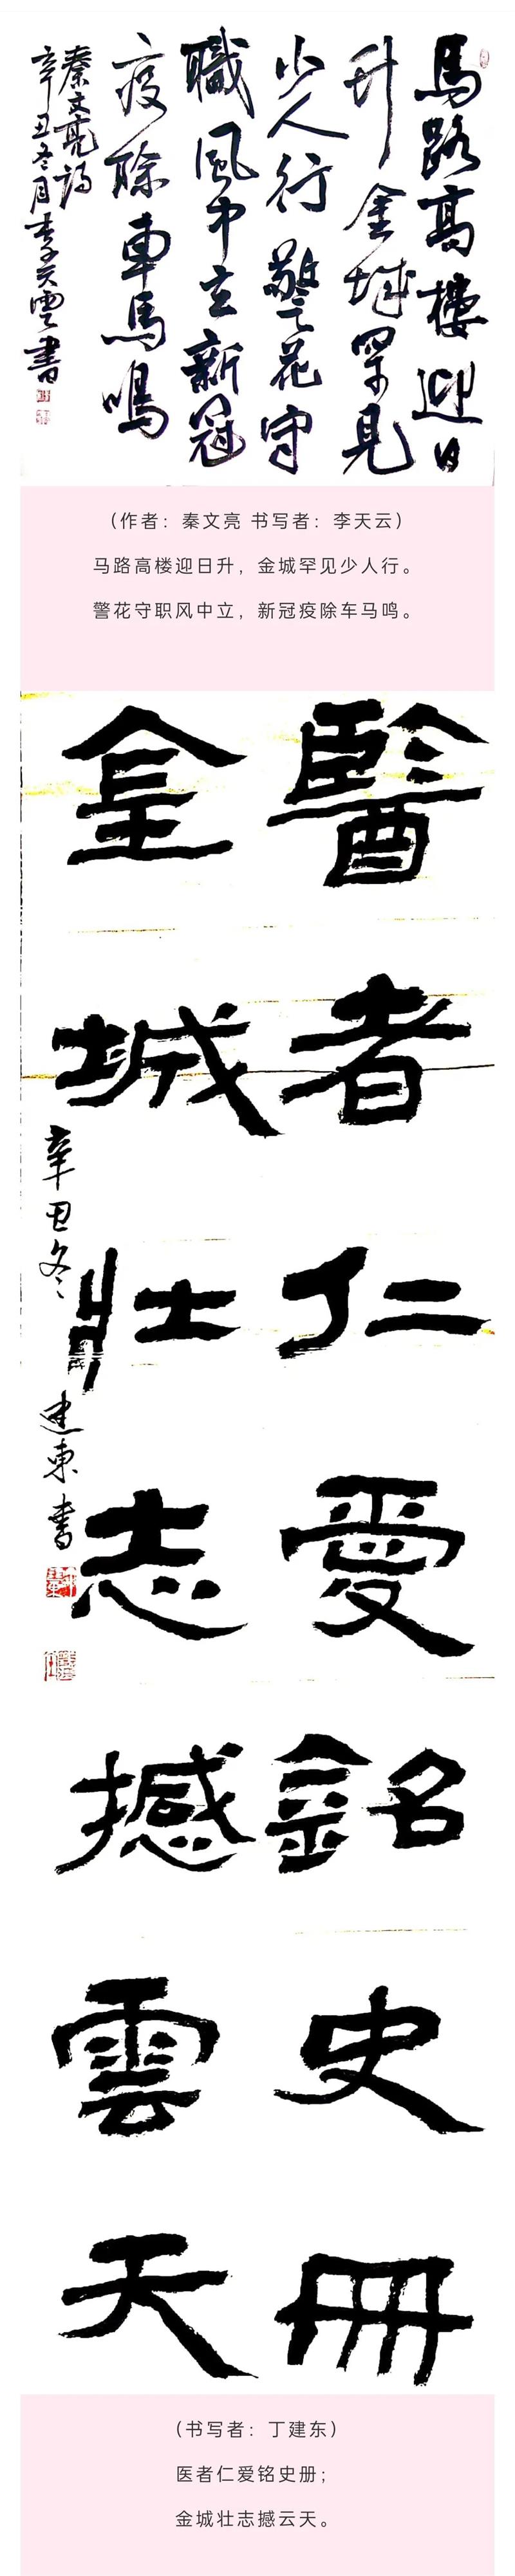 馬路高樓迎日
升金城罕見
少人行警花守
職風中立新冠
疫除車馬鳴
秦文亮詩
辛丑冬月李天雲書
（作者：秦文亮 书写者：李天云）
马路高楼迎日升，金城罕见少人行。
警花守职风中立，新冠疫除车马鸣。
醫者仁愛銘史冊
金城壯志撼雲天
辛丑冬
建東書
（书写者：丁建东）
医者仁爱铭史册；
金城壮志撼云天。